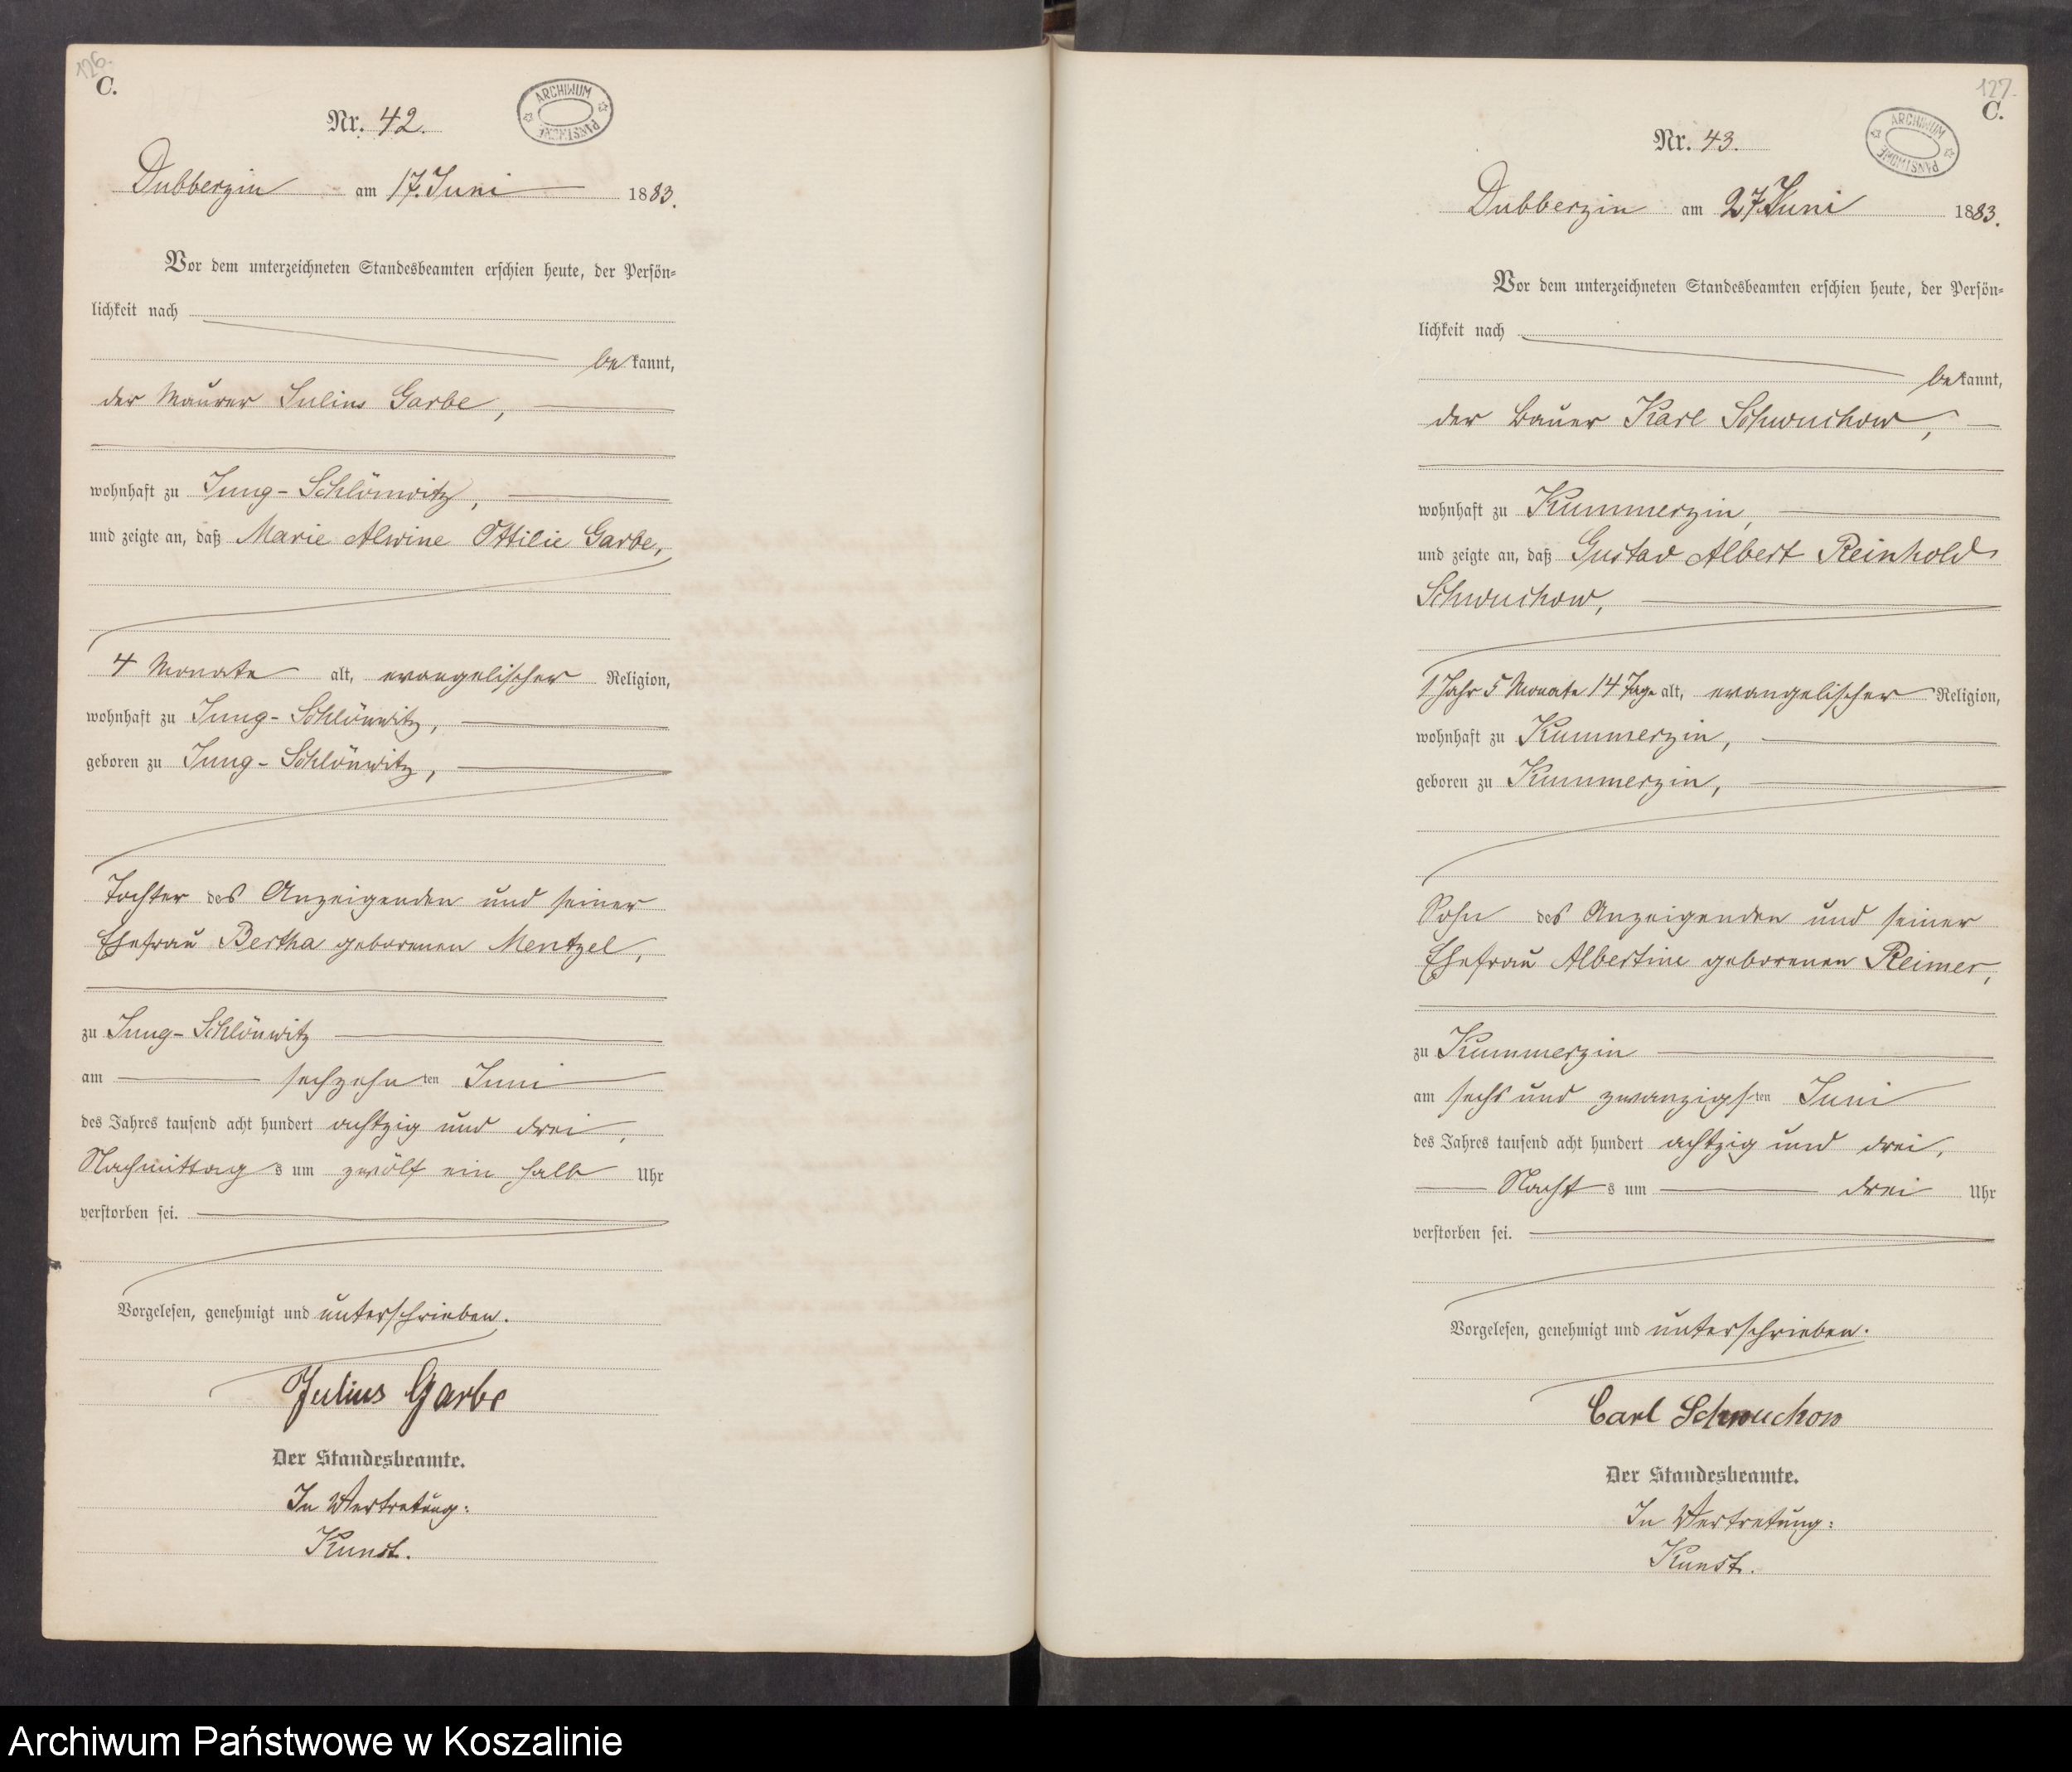 126.
C.
ARCHIWUM PAŃSTWOWE
Nr. 42.
Dubberzin am 17. Juni 1883.
Vor dem unterzeichneten Standesbeamten erschien heute, der Persön-
lichkeit nach
bekannt,
der Maurer Julius Garbe,
wohnhaft zu Jung-Schlönwitz,
und zeigte an, daß Marie Alwine Ottilie Garbe,
4 Monate alt, evangelischer Religion,
wohnhaft zu Jung-Schlönwitz,
geboren zu Jung-Schlönwitz,
Tochter des Anzeigenden und seiner
Ehefrau Bertha geborenen Mentzel,
zu Jung-Schlönwitz
am sechzehnten Juni
des Jahres tausend acht hundert achtzig und drei,
Nachmittags um zwölf ein halb Uhr
verstorben sei.
Vorgelesen, genehmigt und unterschrieben.
Julius Garbe
Der Standesbeamte.
In Vertretung:
Kunst.
127.
C.
ARCHIWUM PAŃSTWOWE
Nr. 43.
Dubberzin am 27. Juni 1883.
Vor dem unterzeichneten Standesbeamten erschien heute, der Persön-
lichkeit nach
bekannt,
der Bauer Karl Schwuchow,
wohnhaft zu Kummerzin,
und zeigte an, daß Gustav Albert Reinhold
Schwuchow,
1 Jahr 5 Monate 14 Tage alt, evangelischer Religion,
wohnhaft zu Kummerzin,
geboren zu Kummerzin,
Sohn des Anzeigenden und seiner
Ehefrau Albertine geborenen Reimer,
zu Kummerzin
am sechs und zwanzigsten Juni
des Jahres tausend acht hundert achtzig und drei,
Nachts um drei Uhr
verstorben sei.
Vorgelesen, genehmigt und unterschrieben.
Carl Schwuchow
Der Standesbeamte.
In Vertretung:
Kunst.
Archiwum Państwowe w Koszalinie